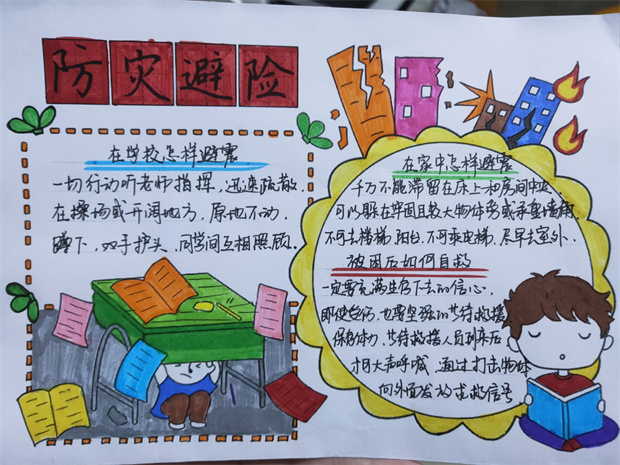 防灾避险
在学校怎样避震
一切行动听老师指挥，迅速疏散.
在操场或开阔地方，原地不动.
蹲下，双手护头，同学间互相照顾.
在家中怎样避震
千万不能滞留在床上和房间中央，
可以躲在牢固且较大物体旁或承重墙角
不可去楼梯，阳台.不可乘电梯，尽早去室外.
被困后如何自救
一定要充满生存下去的信心.
即使受伤，也要坚强的等待救援
保存体力，等待救援人员到来后
大声呼喊，通过打击物体
向外面发出求救信号